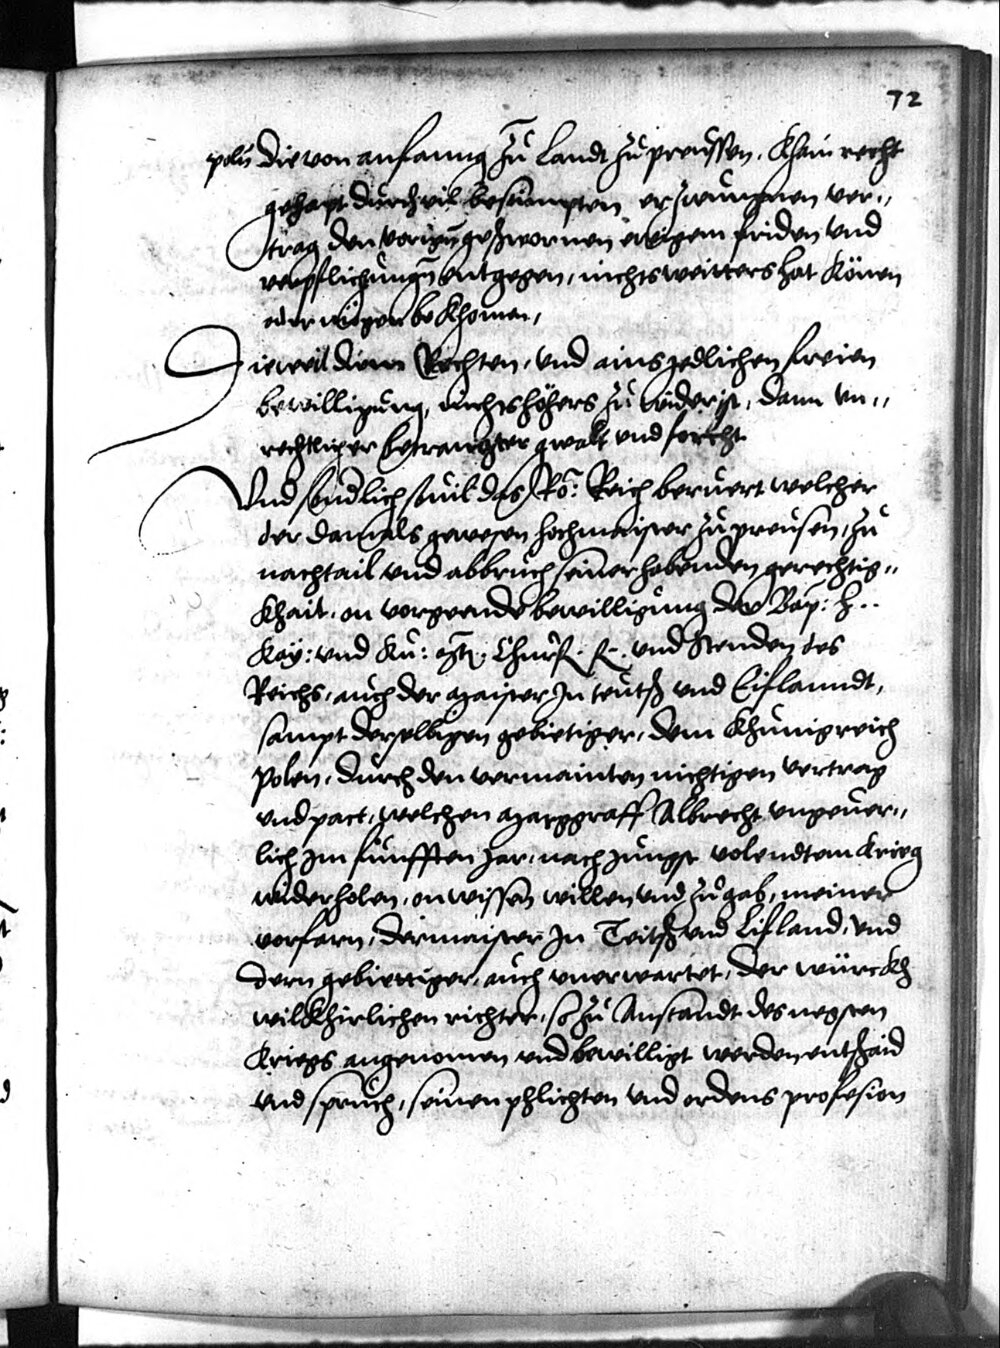 72
poln die von anfanng Zu Landt Zu preussen, Khain recht
gehapt durch vil bestimpten erzwungnen ver„
trag den vorigen geschwornen ewigem friden und
verpflichtungen entgegen, nichts weitters hat Könen
oder mögen beKhomen,
Dieweil Rechten, und ains yedlichen freien
bewilligung, nichts höhers zu wider ist, dann un„
rechtlicher betrangter gwalt und forcht
Und endlich sovil das Rö: Reich beruert welcher
der damals gewesen hochmaister zu preusen, zu
nachtail und abbruch seiner habenden gerechtig„
Khait, on vorgeende bewilligung der Bäp: h..
Kay: und Kü: Mt. Churf. f. und Stenden des
Reichs, auch der maister In teutsch und Eiflanndt,
sampt derselbigen gebietiger, dem Khunigreich
polen, durch den vermainten nichtigen vertrag
und pact, welchen marggraff Albrecht ungeuer„
lich Im funfften Jar, nach Jungst volendtem Krieg
widerholen, on wissen willen und zugab, meiner
vorfarn, der maister In Teitsch und Lifland, und
dern gebiettiger, auch unerwartet, der würckh
wilkhirlichen richter, so zu Anstandt des negsten
Kriegs angenomen und bewilligt worden entschaid
und spruch, seinen phlichten und ordens profesion